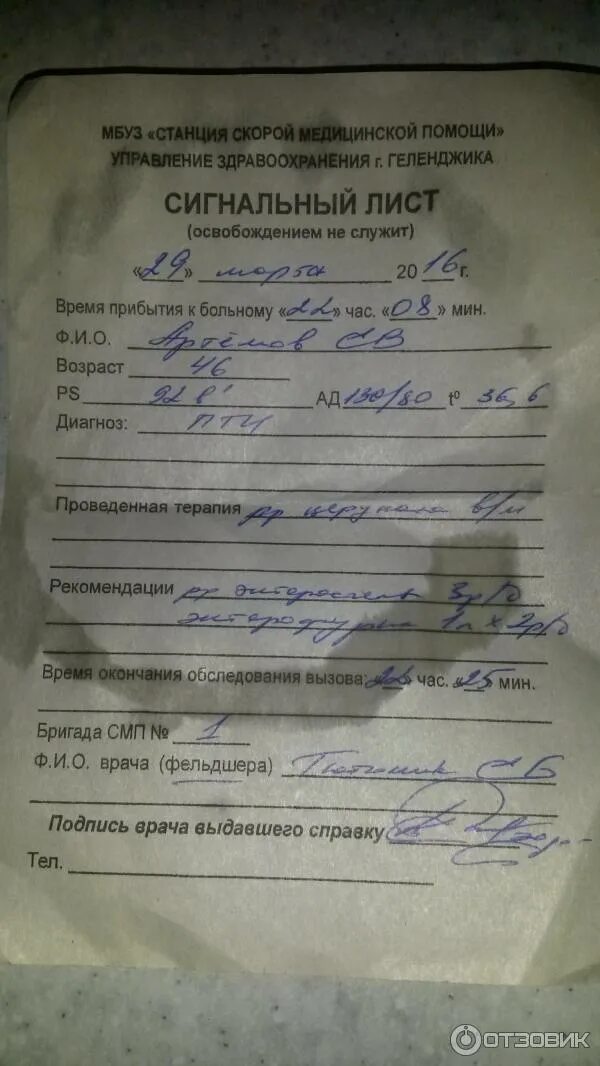 МБУЗ «СТАНЦИЯ СКОРОЙ МЕДИЦИНСКОЙ ПОМОЩИ»
УПРАВЛЕНИЕ ЗДРАВООХРАНЕНИЯ г. ГЕЛЕНДЖИКА
СИГНАЛЬНЫЙ ЛИСТ
(освобождением не служит)
«29» марта 2016 г.
Время прибытия к больному «22» час. «08» мин.
Ф.И.О. Артёмов СВ
Возраст 46
PS 92 в' АД 130/80 t° 36,6
Диагноз: ПТИ
Проведенная терапия рр церукала в/м
Рекомендации рр 3р/д
1л х 2р/д
Время окончания обследования вызова: «22» час. «25» мин.
Бригада СМП № 1
Ф.И.О. врача (фельдшера) СБ
Подпись врача выдавшего справку
Тел.
ОТЗОВИК